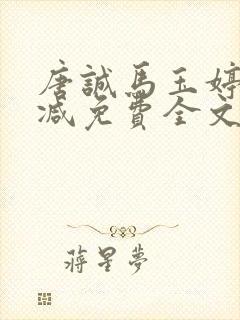 唐誠馬玉婷
減免費全文
蔣星夢